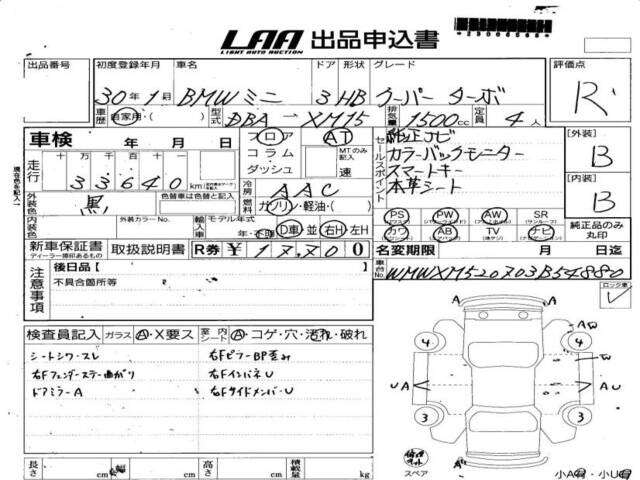 LAA 出品申込書
LIGHT AUTO AUCTION
出品番号 初度登録年月 車名 ドア 形状 グレード 評価点
30年1月 BMWミニ 3 HB クーパー ターボ R
車歴 自家用・( ) 型式 DBA-XM15 排気量 1500cc 定員 4人
車検 年 月 日 フロア AT セールスポイント 純正ナビ [外装]
コラム MTのみ記入 カラーバックモニター B
ダッシュ 速 スマートキー
走行 十 万 千 百 十 一 本革シート [内装]
33640 km 冷房 AAC B
現在色を記入→ 外装色 黒 色替車は色替と記入 燃料 ガソリン・軽油・( )
PS PW AW SR
(サンルーフ)
内装色 外装カラーNo. 輸入車 モデル年式 カワ AB TV ナビ 純正品のみ丸印
年・不明 D車 並 右H 左H
新車保証書 取扱説明書 R券 ¥ 0 名変期限 月 日迄
ディーラー捺印あるもの
車台No. WMWXM520703B54880
注意事項 後日品[ ]
不具合箇所等
ロック車
検査員記入 ガラス A・X要ス 室内シート A・コゲ・穴・汚れ・破れ
シートシワ・スレ 右FピラーBP歪み
右Fフェンダーステー曲がり 右FインパネU
ドアミラーA 右FサイドメンバーU
A A
4 4 A W
W
U A A U
3 3
スペア
長さ cm 幅 cm 高さ cm 積載量 kg 小A・小U